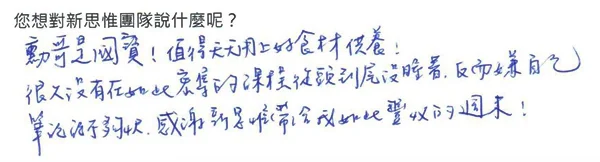 您想對新思惟團隊說什麼呢？
勳哥是國寶！值得天天用上好食材供養！
很久沒有在如此密集的課程從頭到尾沒睡著，反而嫌自己
筆記得不夠快，感謝新思惟帶給我如此豐收的週末！